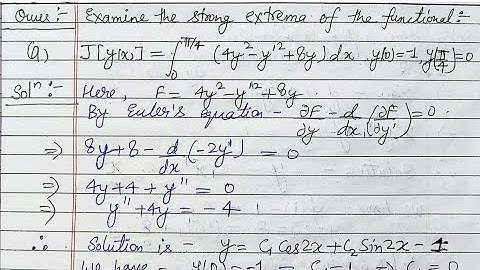 Ques:- Examine the strong extrema of the functional:-
(a) J[y(x)] = ∫₀^{π/4} (4y²-y'²+8y) dx, y(0)=-1, y(π/4)=0
Solⁿ:- Here, F = 4y²-y'²+8y
By Euler's Equation - ∂F/∂y - d/dx(∂F/∂y')=0.
⇒ 8y+8 - d/dx(-2y') = 0
⇒ 4y+4+y'' = 0
⇒ y''+4y = -4
∴ Solution is - y= C₁Cos2x+C₂Sin2x-1
We have - y(0)=-1